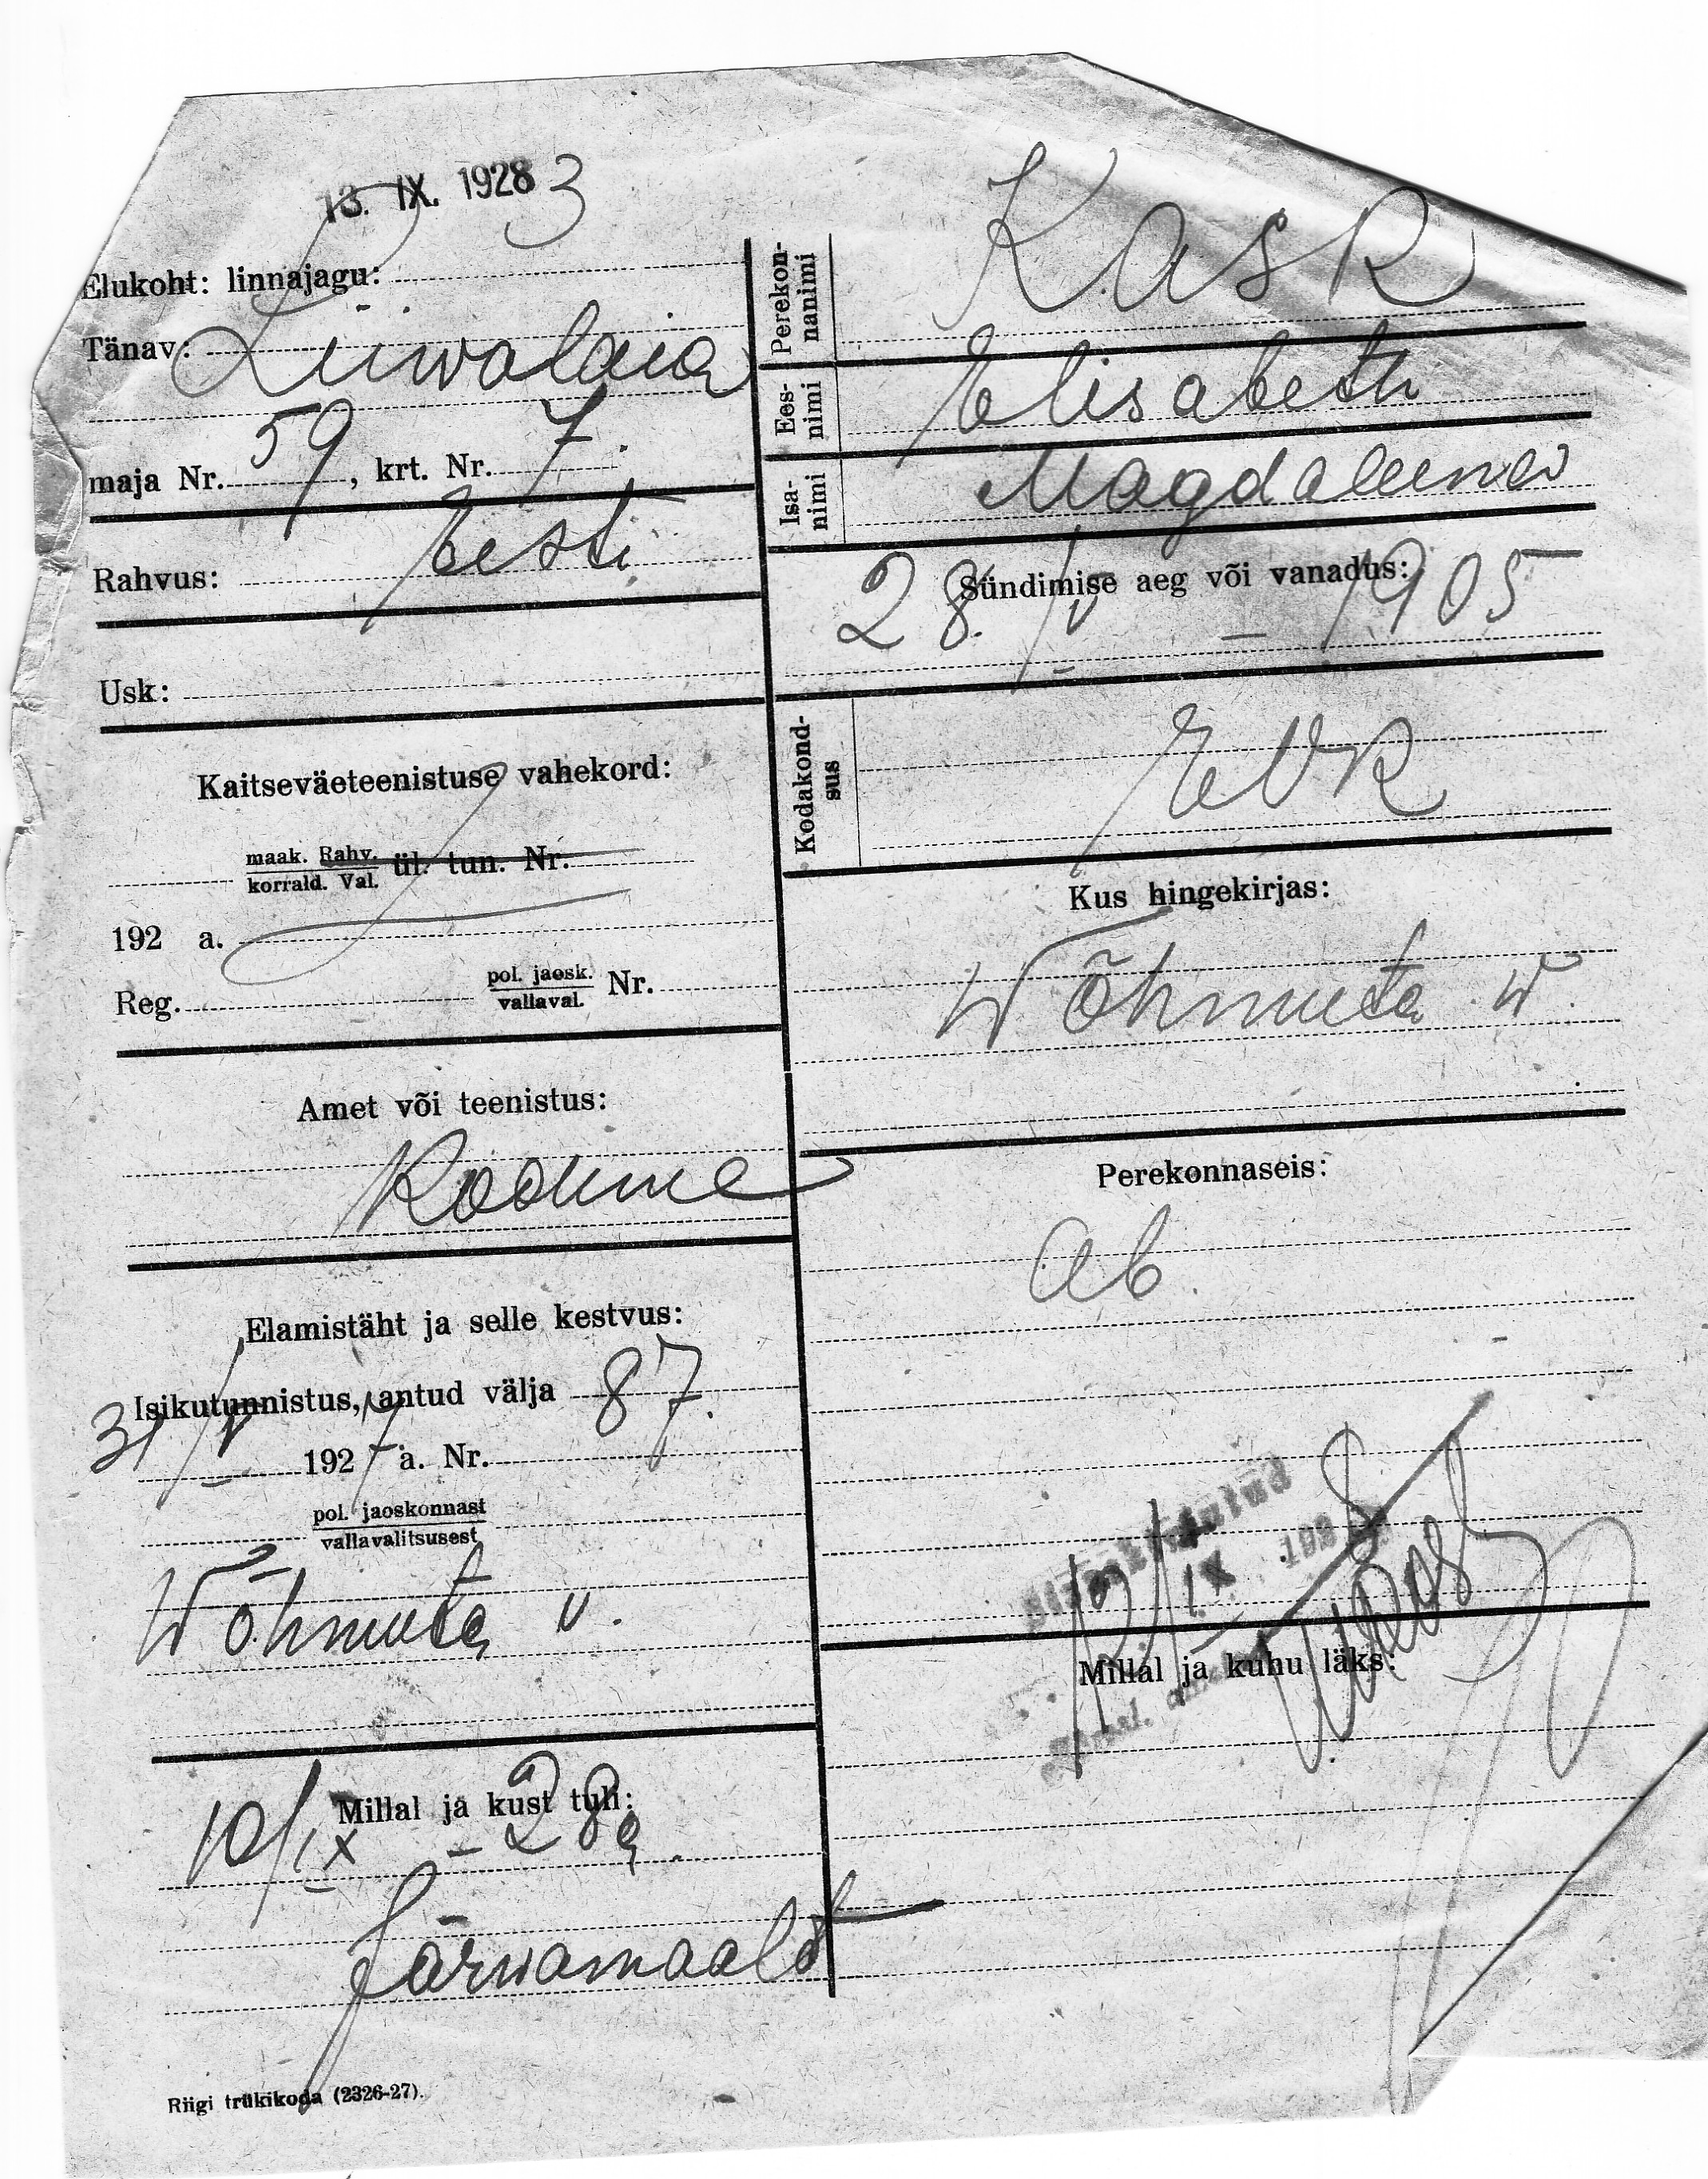 13. IX. 1928 3
Elukoht: linnajagu:
Tänav: Liiwalaia
maja Nr. 59, krt. Nr. 7.
Rahvus: Eesti
Usk:
Kaitseväeteenistuse vahekord:
maak. Rahv.
korrald. Val. ül. tun. Nr.
192 a.
Reg. pol. jaosk.
vallaval. Nr.
Amet või teenistus:
Elamistäht ja selle kestvus:
Isikutunnistus, antud välja
31/V 1927 a. Nr. 87.
pol. jaoskonnast
vallavalitsusest
Wõhmuta v.
Millal ja kust tuli:
10/IX - 28 a.
Järwamaalt
Riigi trükikoda (2326-27).
Perekon-
nanimi
Kask
Ees-
nimi
Elisabeth
Isa-
nimi
Magdaleena
Sündimise aeg või vanadus:
28. IV - 1905
Kodakond-
sus
EVR
Kus hingekirjas:
Wõhmuta w.
Perekonnaseis:
ab.
IX
Millal ja kuhu läks: